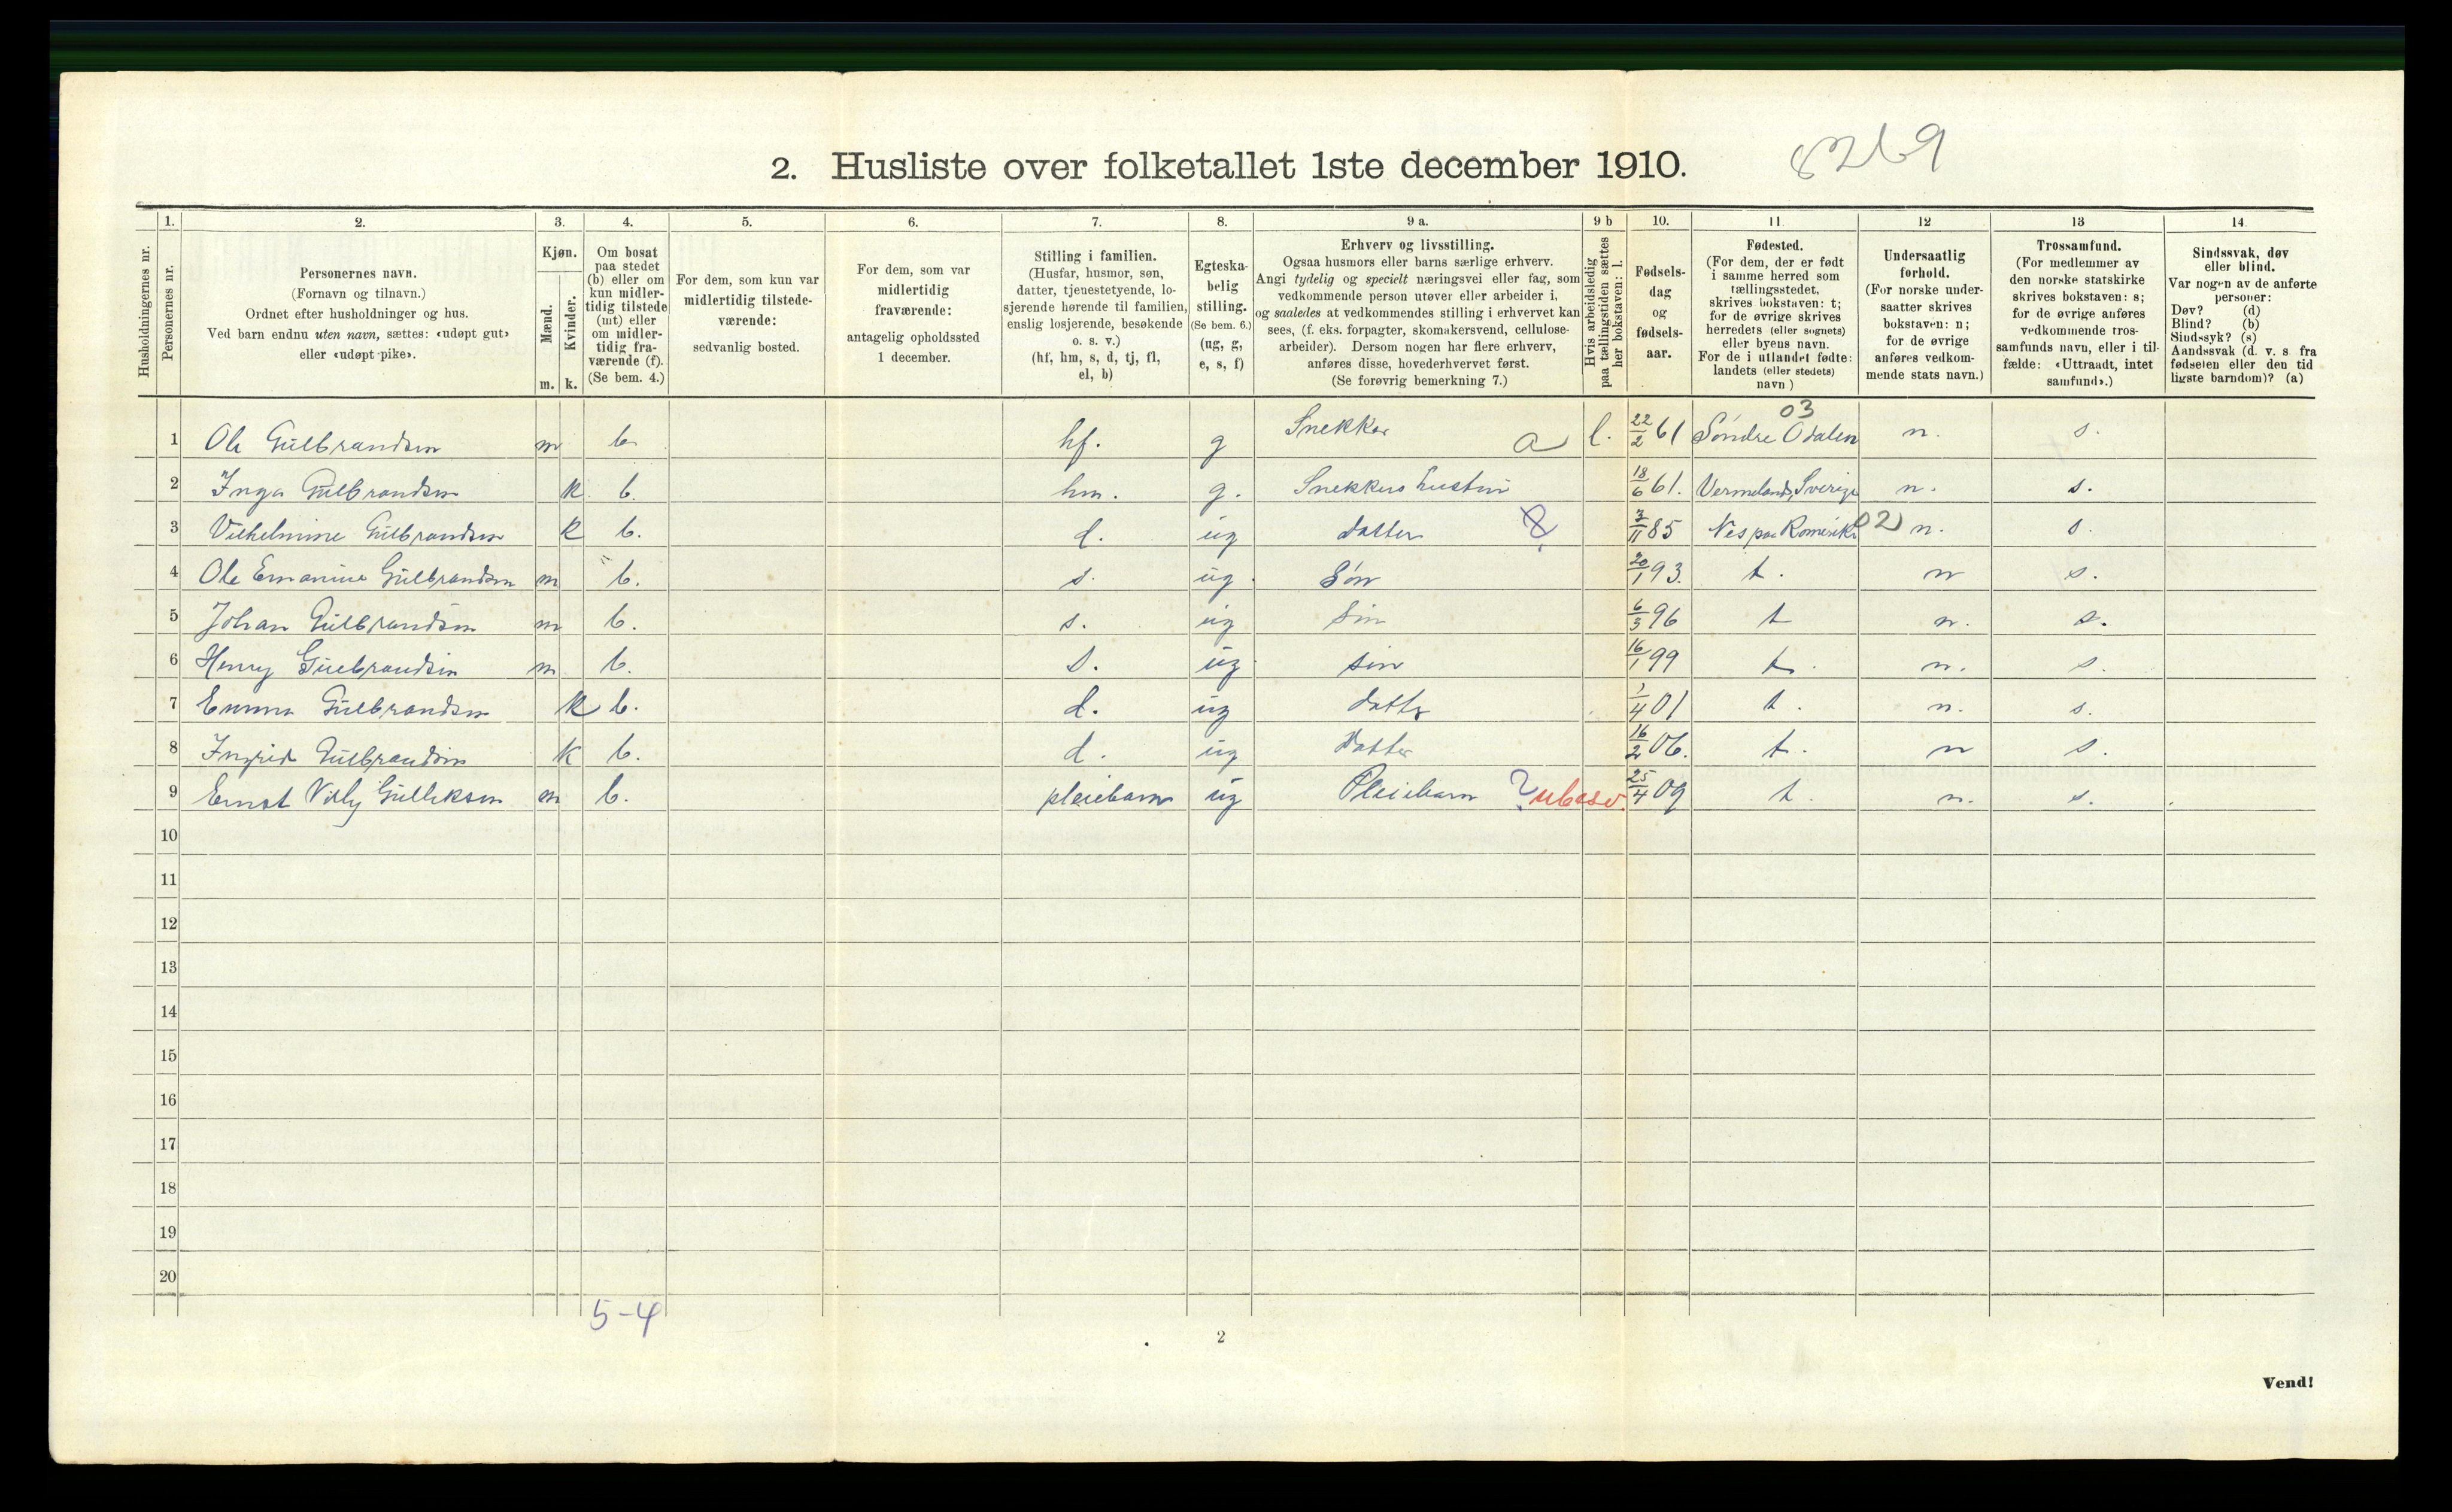 8269
2. Husliste over folketallet 1ste december 1910.
Husholdningernes nr.
1.
Personernes nr.
2.
Personernes navn.
(Fornavn og tilnavn.)
Ordnet efter husholdninger og hus.
Ved barn endnu uten navn, sættes: «udøpt gut»
eller «udøpt pike».
3.
Kjøn.
Mænd.
Kvinder.
m. k.
4.
Om bosat
paa stedet
(b) eller om
kun midler-
tidig tilstede
(mt) eller
om midler-
tidig fra-
værende (f).
(Se bem. 4.)
5.
For dem, som kun var
midlertidig tilstede-
værende:
sedvanlig bosted.
6.
For dem, som var
midlertidig
fraværende:
antagelig opholdssted
1 december.
7.
Stilling i familien.
(Husfar, husmor, søn,
datter, tjenestetyende, lo-
sjerende hørende til familien,
enslig losjerende, besøkende
o. s. v.)
(hf, hm, s, d, tj, fl,
el, b)
8.
Egteska-
belig
stilling.
(Se bem. 6.)
(ug, g,
e, s, f)
9 a.
Erhverv og livsstilling.
Ogsaa husmors eller barns særlige erhverv.
Angi tydelig og specielt næringsvei eller fag, som
vedkommende person utøver eller arbeider i,
og saaledes at vedkommendes stilling i erhvervet kan
sees, (f. eks. forpagter, skomakersvend, cellulose-
arbeider). Dersom nogen har flere erhverv,
anføres disse, hovederhvervet først.
(Se forøvrig bemerkning 7.)
9 b
Hvis arbeidsledig
paa tællingstiden sættes
her bokstaven: l.
10.
Fødsels-
dag
og
fødsels-
aar.
11.
Fødested.
(For dem, der er født
i samme herred som
tællingsstedet,
skrives bokstaven: t;
for de øvrige skrives
herredets (eller sognets)
eller byens navn.
For de i utlandet fødte:
landets (eller stedets)
navn)
12
Undersaatlig
forhold.
(For norske under-
saatter skrives
bokstaven: n;
for de øvrige
anføres vedkom-
mende stats navn.)
13
Trossamfund.
(For medlemmer av
den norske statskirke
skrives bokstaven: s;
for de øvrige anføres
vedkommende tros-
samfunds navn, eller i til-
fælde: «Uttraadt, intet
samfund».)
14
Sindssvak, døv
eller blind.
Var nogen av de anførte
personer:
Døv? (d)
Blind? (b)
Sindssyk? (s)
Aandssvak (d. v. s. fra
fødselen eller den tid
ligste barndom)? (a)
03
1 Ole Gulbrandsen m b. hf. g Snekker a l. 22/2 61 Søndre Odalen n. s.
2 Inga Gulbrandsen k b. hm. g. Snekkers hustru 18/6 61. Vermeland, Sverige n. s.
3 Vilhelmine Gulbrandsen k b. d. ug datter 3/11 85 Nes paa Romerike 02 n. s.
4 Ole Emanius Gulbrandsen m b. s. ug. Søn 20/1 93. t. n s.
5 Johan Gulbrandsen m b. s. ug Søn 6/3 96 t n. s.
6 Henry Gulbrandsen m b. s. ug søn 16/1 99 t. n. s.
7 Emma Gulbrandsen k b. d. ug datter 1/4 01 t. n. s.
8 Ingrid Gulbrandsen k b. d. ug datter 16/2 06. t. n s.
9 Ernst Villy Gulliksen m b. pleiebarn ug Pleiebarn ? ubesv. 25/4 09 t. n. s.
10
11
12
13
14
15
16
17
18
19
20
5-4
2
Vend!